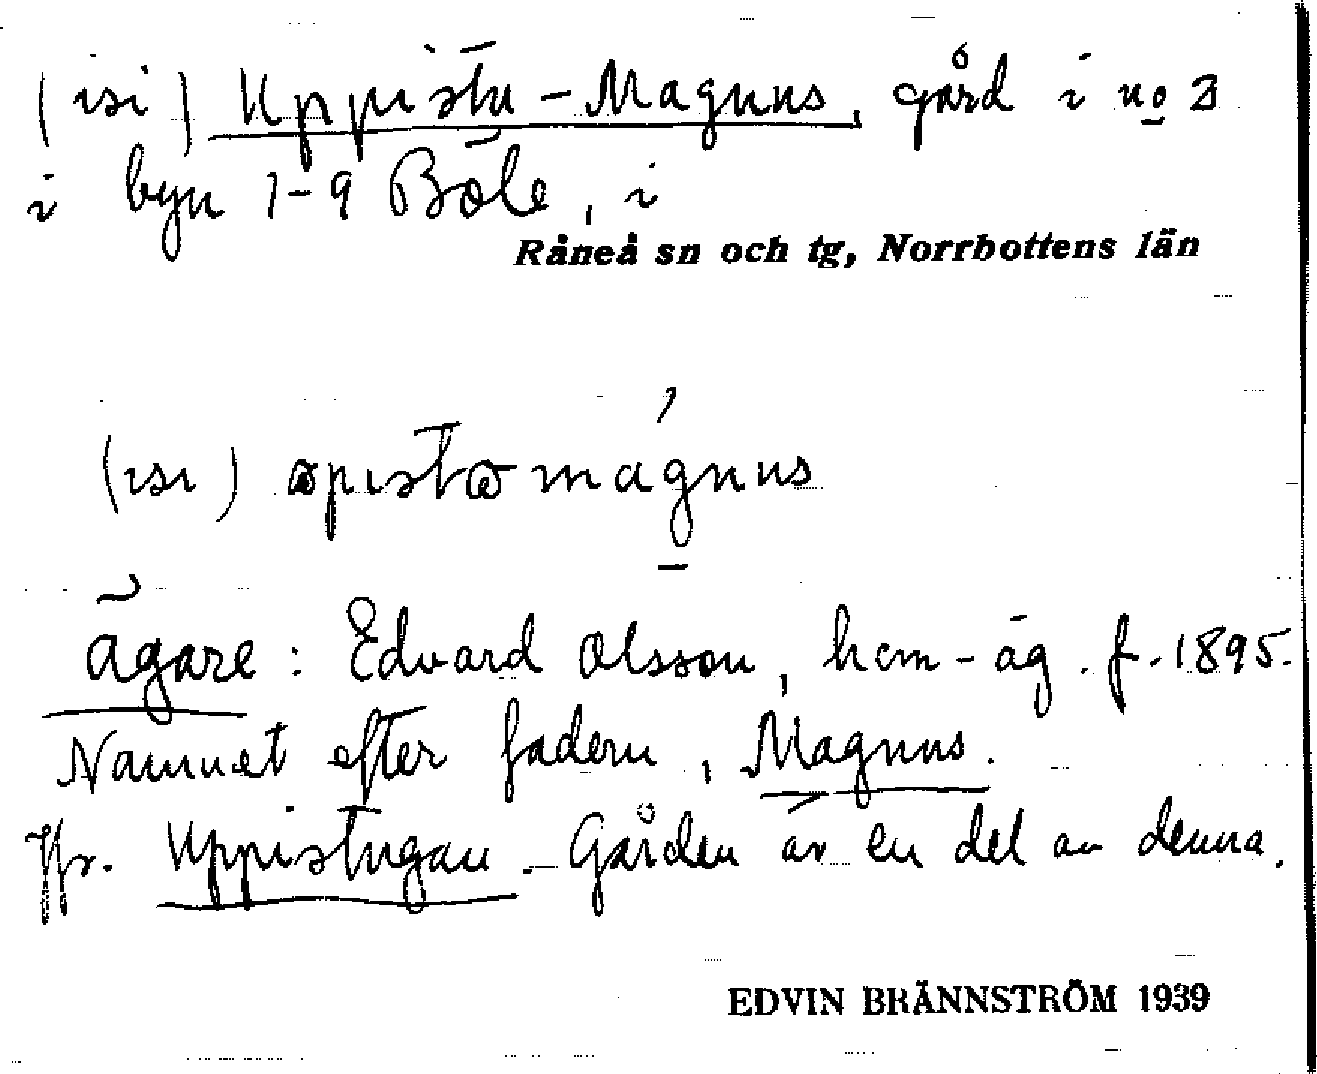 (isi) Uppistu-Magnus, gård i no 3
i byn 1-9 Böle, i
Råneå sn och tg, Norrbottens län
(ısı) mágnus
Ägare: Edvard Olsson, hem-äg. f. 1895.
Namnet efter fadern, Magnus.
Jfr. Uppistugan. Gården är en del av denna.
EDVIN BRÄNNSTRÖM 1939